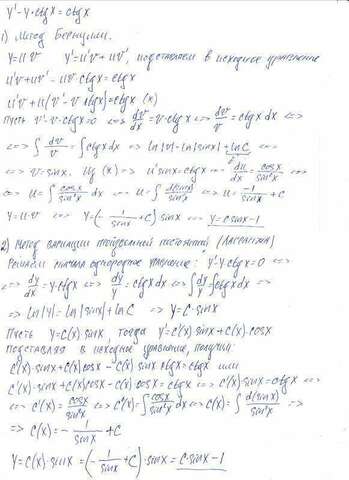 y' - y·ctgx = ctgx
1) Метод Бернулли.
y = u·v    y' = u'v + uv', подставляем в исходное уравнение
u'v + uv' - uv·ctgx = ctgx
u'v + u(v' - v ctgx) = ctgx (x)
Пусть v' - v·ctgx = 0 <=> dv/dx = v·ctgx <=> dv/v = ctgx dx <=>
<=> ∫ dv/v = ∫ ctgx dx <=> ln|v| = ln|sinx| + ln C =>
<=> v = sinx. (x) => u' sinx = ctgx <=> du/dx = cosx/sin²x <=>
<=> u = ∫ cosx/sin²x dx <=> u = ∫ d(sinx)/sin²x <=> u = -1/sinx + C
y = u·v <=> y = (-1/sinx + C) sinx <=> y = C sinx - 1
2) Метод вариации произвольной постоянной (Лагранжа)
Решаем сначала однородное уравнение: y' - y ctgx = 0 <=>
<=> dy/dx = y·ctgx <=> dy/y = ctgx dx <=> ∫ dy/y = ∫ ctgx dx =>
=> ln|y| = ln|sinx| + ln C => y = C·sinx
Пусть y = C(x)·sinx, тогда y' = C'(x)·sinx + C(x)·cosx
Подставляя в исходное уравнение, получим:
C'(x)·sinx + C(x)cosx - C(x)·sinx ctgx = ctgx или
C'(x)·sinx + C(x)cosx - C(x)·cosx = ctgx <=> C'(x)·sinx = ctgx <=>
<=> C'(x) = cosx/sin²x <=> C(x) = ∫ cosx/sin²x dx <=> C(x) = ∫ d(sinx)/sin²x =>
=> C(x) = -1/sinx + C
y = C(x)·sinx = (-1/sinx + C)·sinx = C·sinx - 1